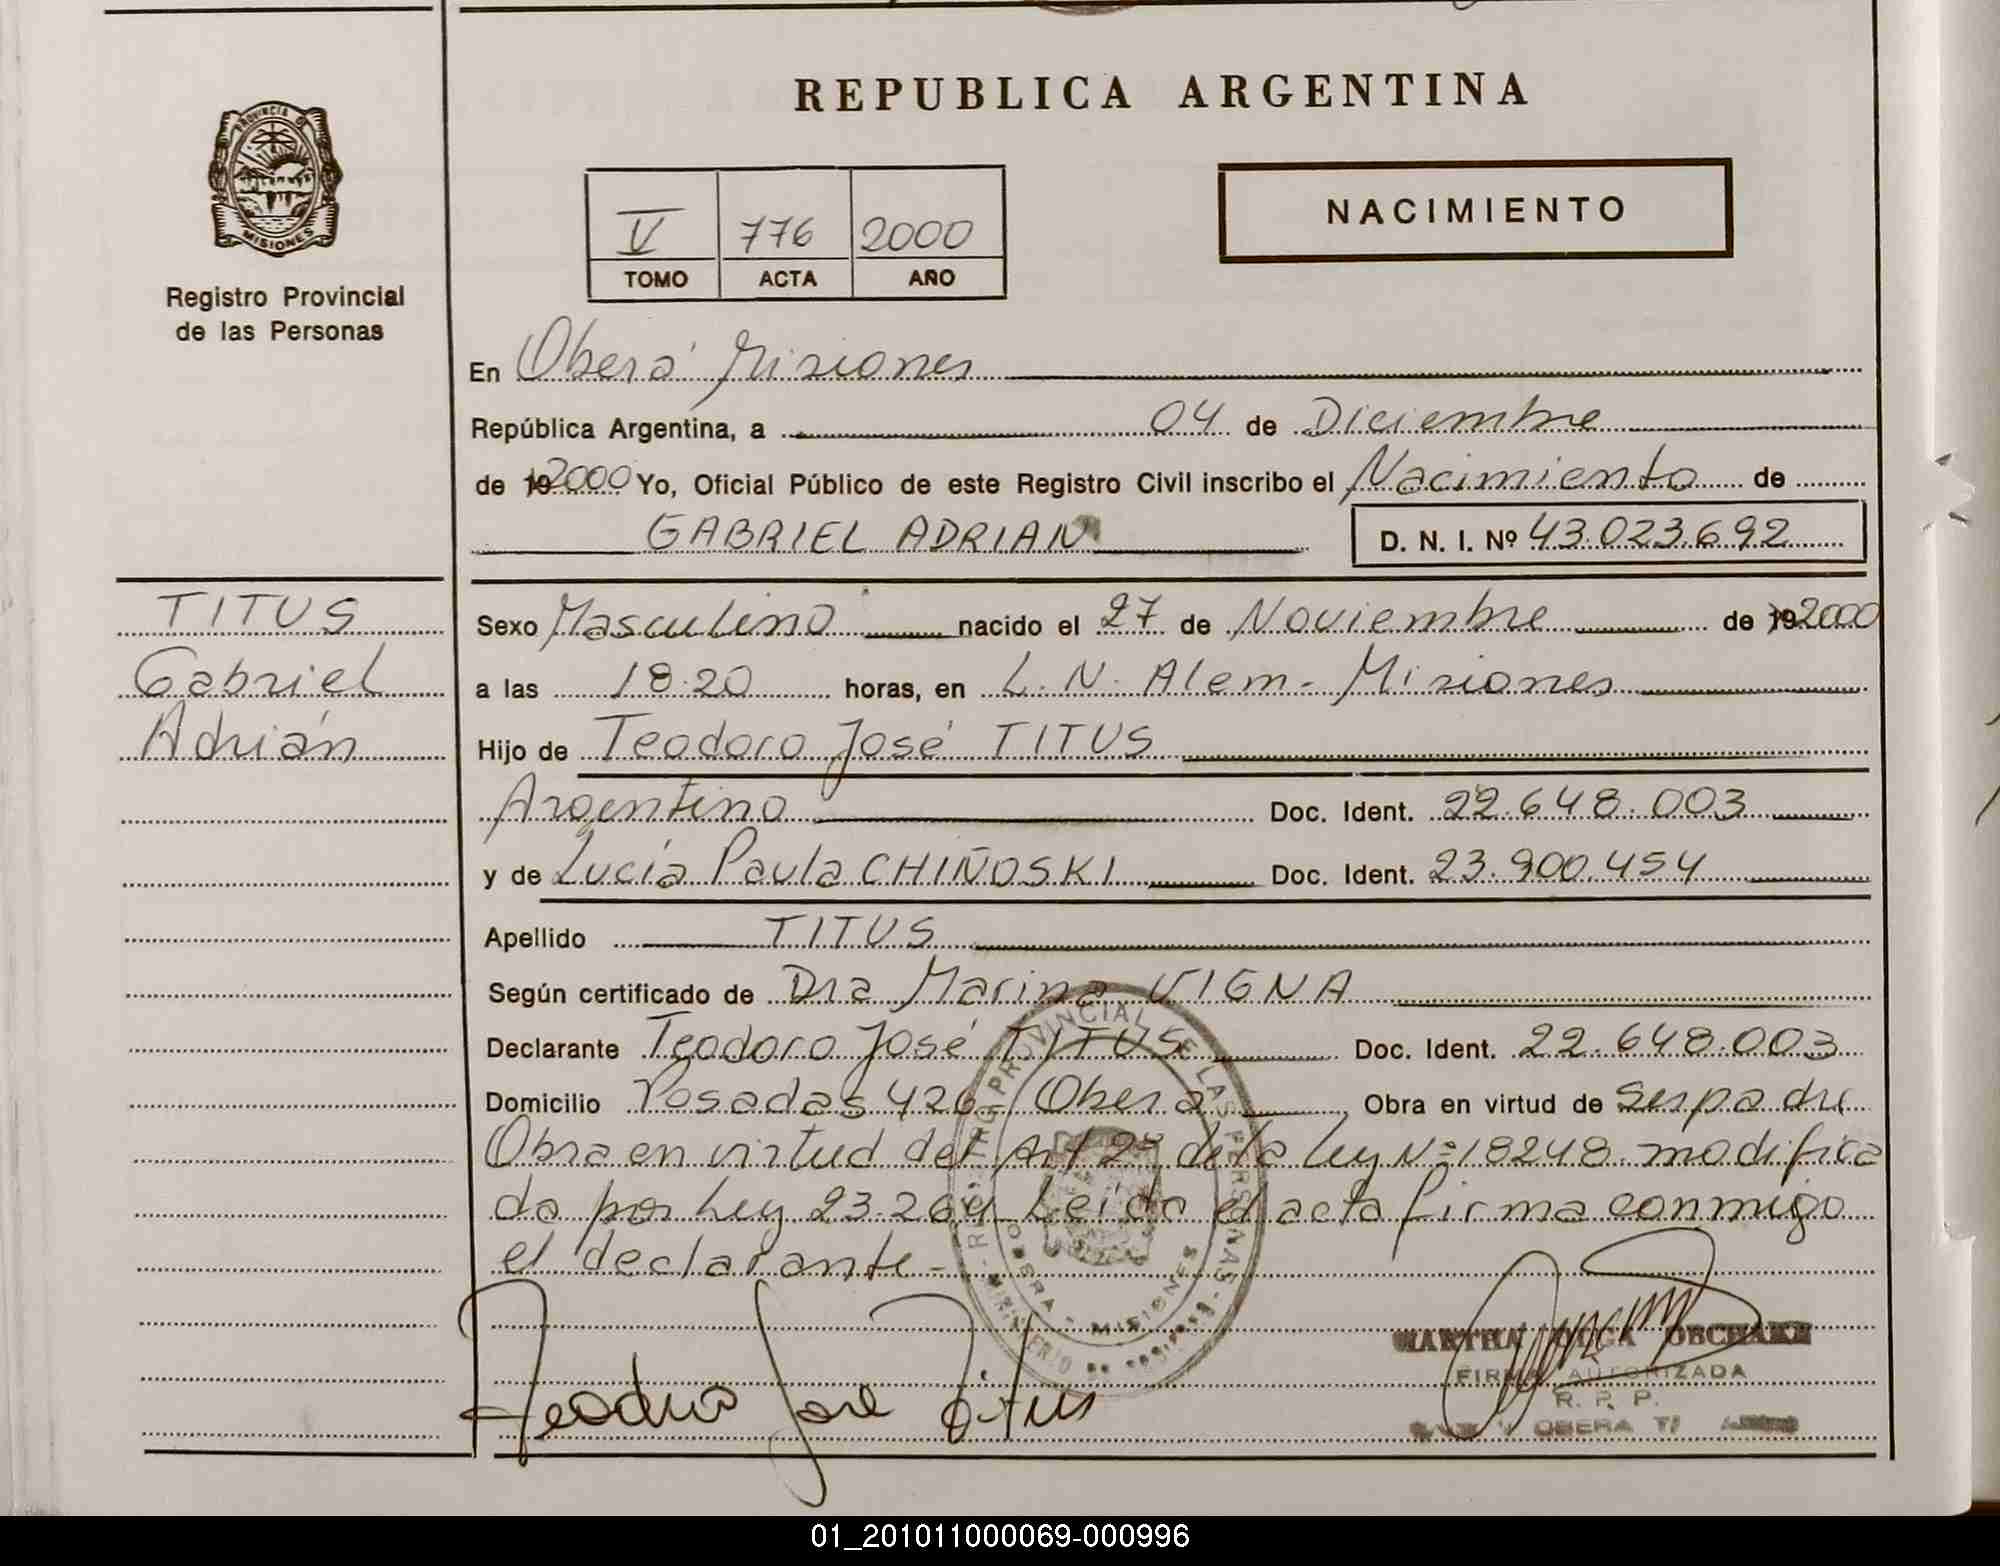 REPUBLICA ARGENTINA
PROVINCIA D
MISIONES
Registro Provincial
de las Personas
V 776 2000
TOMO ACTA AÑO
NACIMIENTO
En Oberá Misiones
República Argentina, a 04 de Diciembre
de 19 2000 Yo, Oficial Público de este Registro Civil inscribo el Nacimiento de
GABRIEL ADRIAN D. N. I. Nº 43.023.692
TITUS
Gabriel
Adrián
Sexo Masculino nacido el 27 de Noviembre de 19 2000
a las 18.20 horas, en L. N. Alem - Misiones
Hijo de Teodoro José TITUS
Argentino Doc. Ident. 22.648.003
y de Lucía Paula CHIÑOSKI Doc. Ident. 23.900.454
Apellido TITUS
Según certificado de Dra Marina VIGNA
Declarante Teodoro José TITUS Doc. Ident. 22.648.003
Domicilio Posadas 426 - Oberá Obra en virtud de Ser padre
Obra en virtud del Art 2º de la Ley Nº 18248 modifica
da por Ley 23.264 Leída el acta firma conmigo
el declarante -
PROVINCIAL DE LAS PERSONAS
OBERA - MISIONES
Teodoro José Titus
MARTHA OLGA
FIRMA AUTORIZADA
R. P. P.
OBERA
01_201011000069-000996